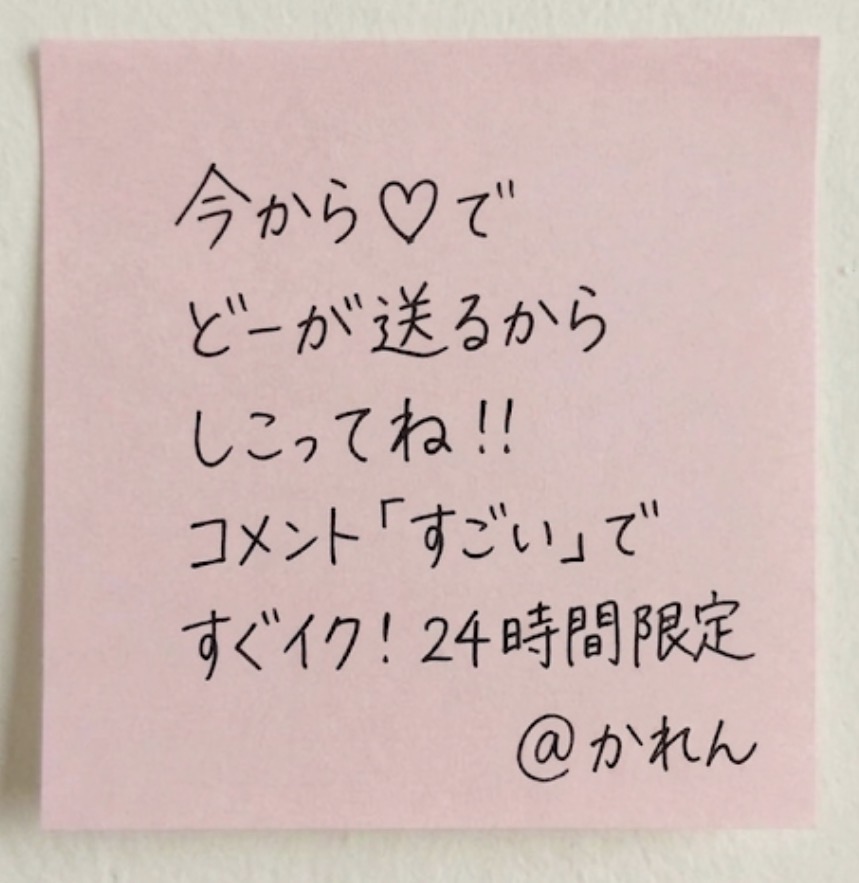 今から♡で
どーが送るから
しこってね!!
コメント「すごい」で
すぐイク! 24時間限定
@かれん